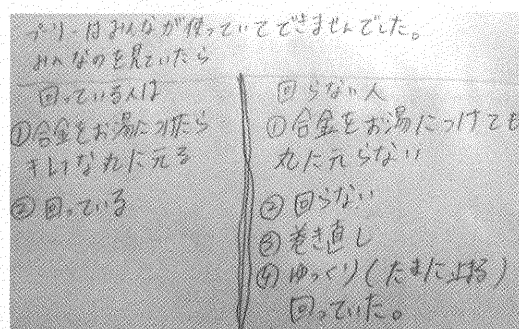 プリーはみんなが使っていてできませんでした。
みんなのを見ていたら
回っている人は
①合金をお湯につけたら
キレイな丸に元る
②回っている
回らない人
①合金をお湯につけても
丸に元らない
②回らない
③巻き直し
④ゆっくり(たまに止る)
回っていた。